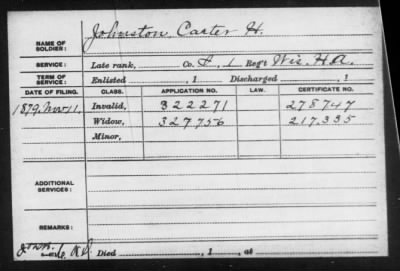 NAME OF SOLDIER: Johnston, Carter H.
SERVICE: Late rank, Co. , 1 Reg't Wis. H.A.
TERM OF SERVICE: Enlisted , 1 Discharged , 1
DATE OF FILING. CLASS. APPLICATION NO. LAW. CERTIFICATE NO.
1879, Nov 11, Invalid, 322271 278747
Widow, 327756 217.335
Minor,
ADDITIONAL SERVICES:
REMARKS:
Died , 1 , at